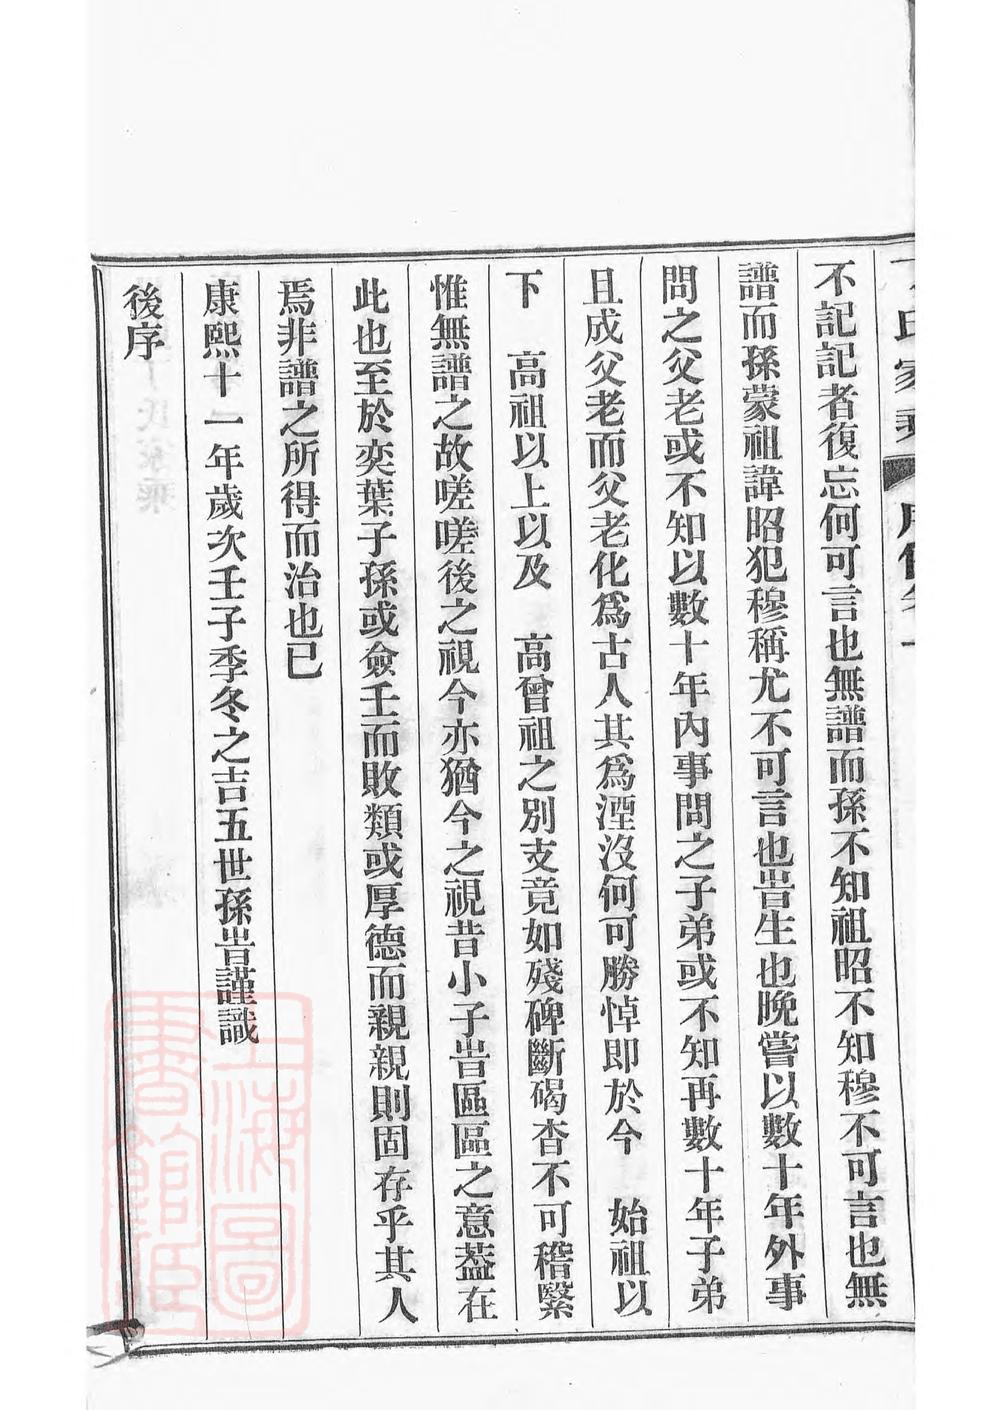 氏家乘
不記記者復忘何可言也無譜而孫不知祖昭不知穆不可言也無
譜而孫蒙祖諱昭犯穆稱尤不可言也旹生也晚嘗以數十年外事
問之父老或不知以數十年內事問之子弟或不知再數十年子弟
且成父老而父老化爲古人其爲湮沒何可勝悼即於今 始祖以
下 高祖以上以及 高曾祖之別支竟如殘碑斷碣杳不可稽緊
惟無譜之故嗟嗟後之視今亦猶今之視昔小子旹區區之意葢在
此也至於奕葉子孫或僉壬而敗類或厚德而親親則固存乎其人
焉非譜之所得而治也已
康熙十一年歲次壬子季冬之吉五世孫旹謹識
後序
上海圖
書館藏